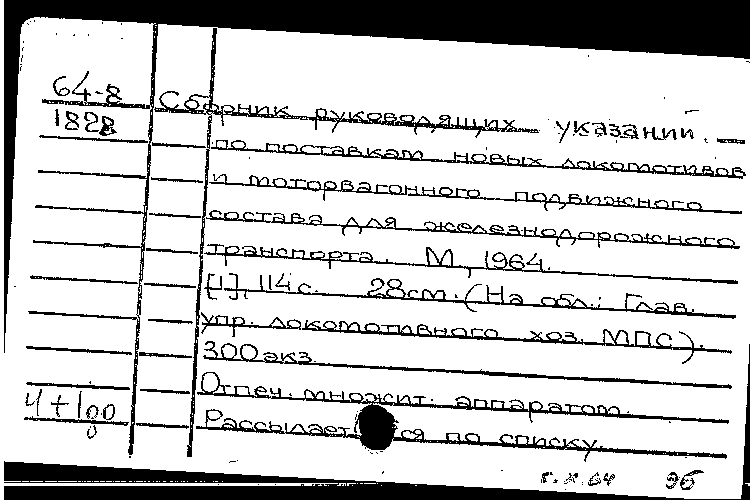 64-8
1828
Сборник руководящих указаний
по поставкам новых локомотивов
и моторвагонного подвижного
состава для железнодорожного
транспорта. М., 1964.
[1], 114 с. 28 см. (На обл.: Глав.
упр. локомотивного хоз. МПС).
300 экз.
Отпеч. множит. аппаратом.
Рассылается по списку.
Ч+1